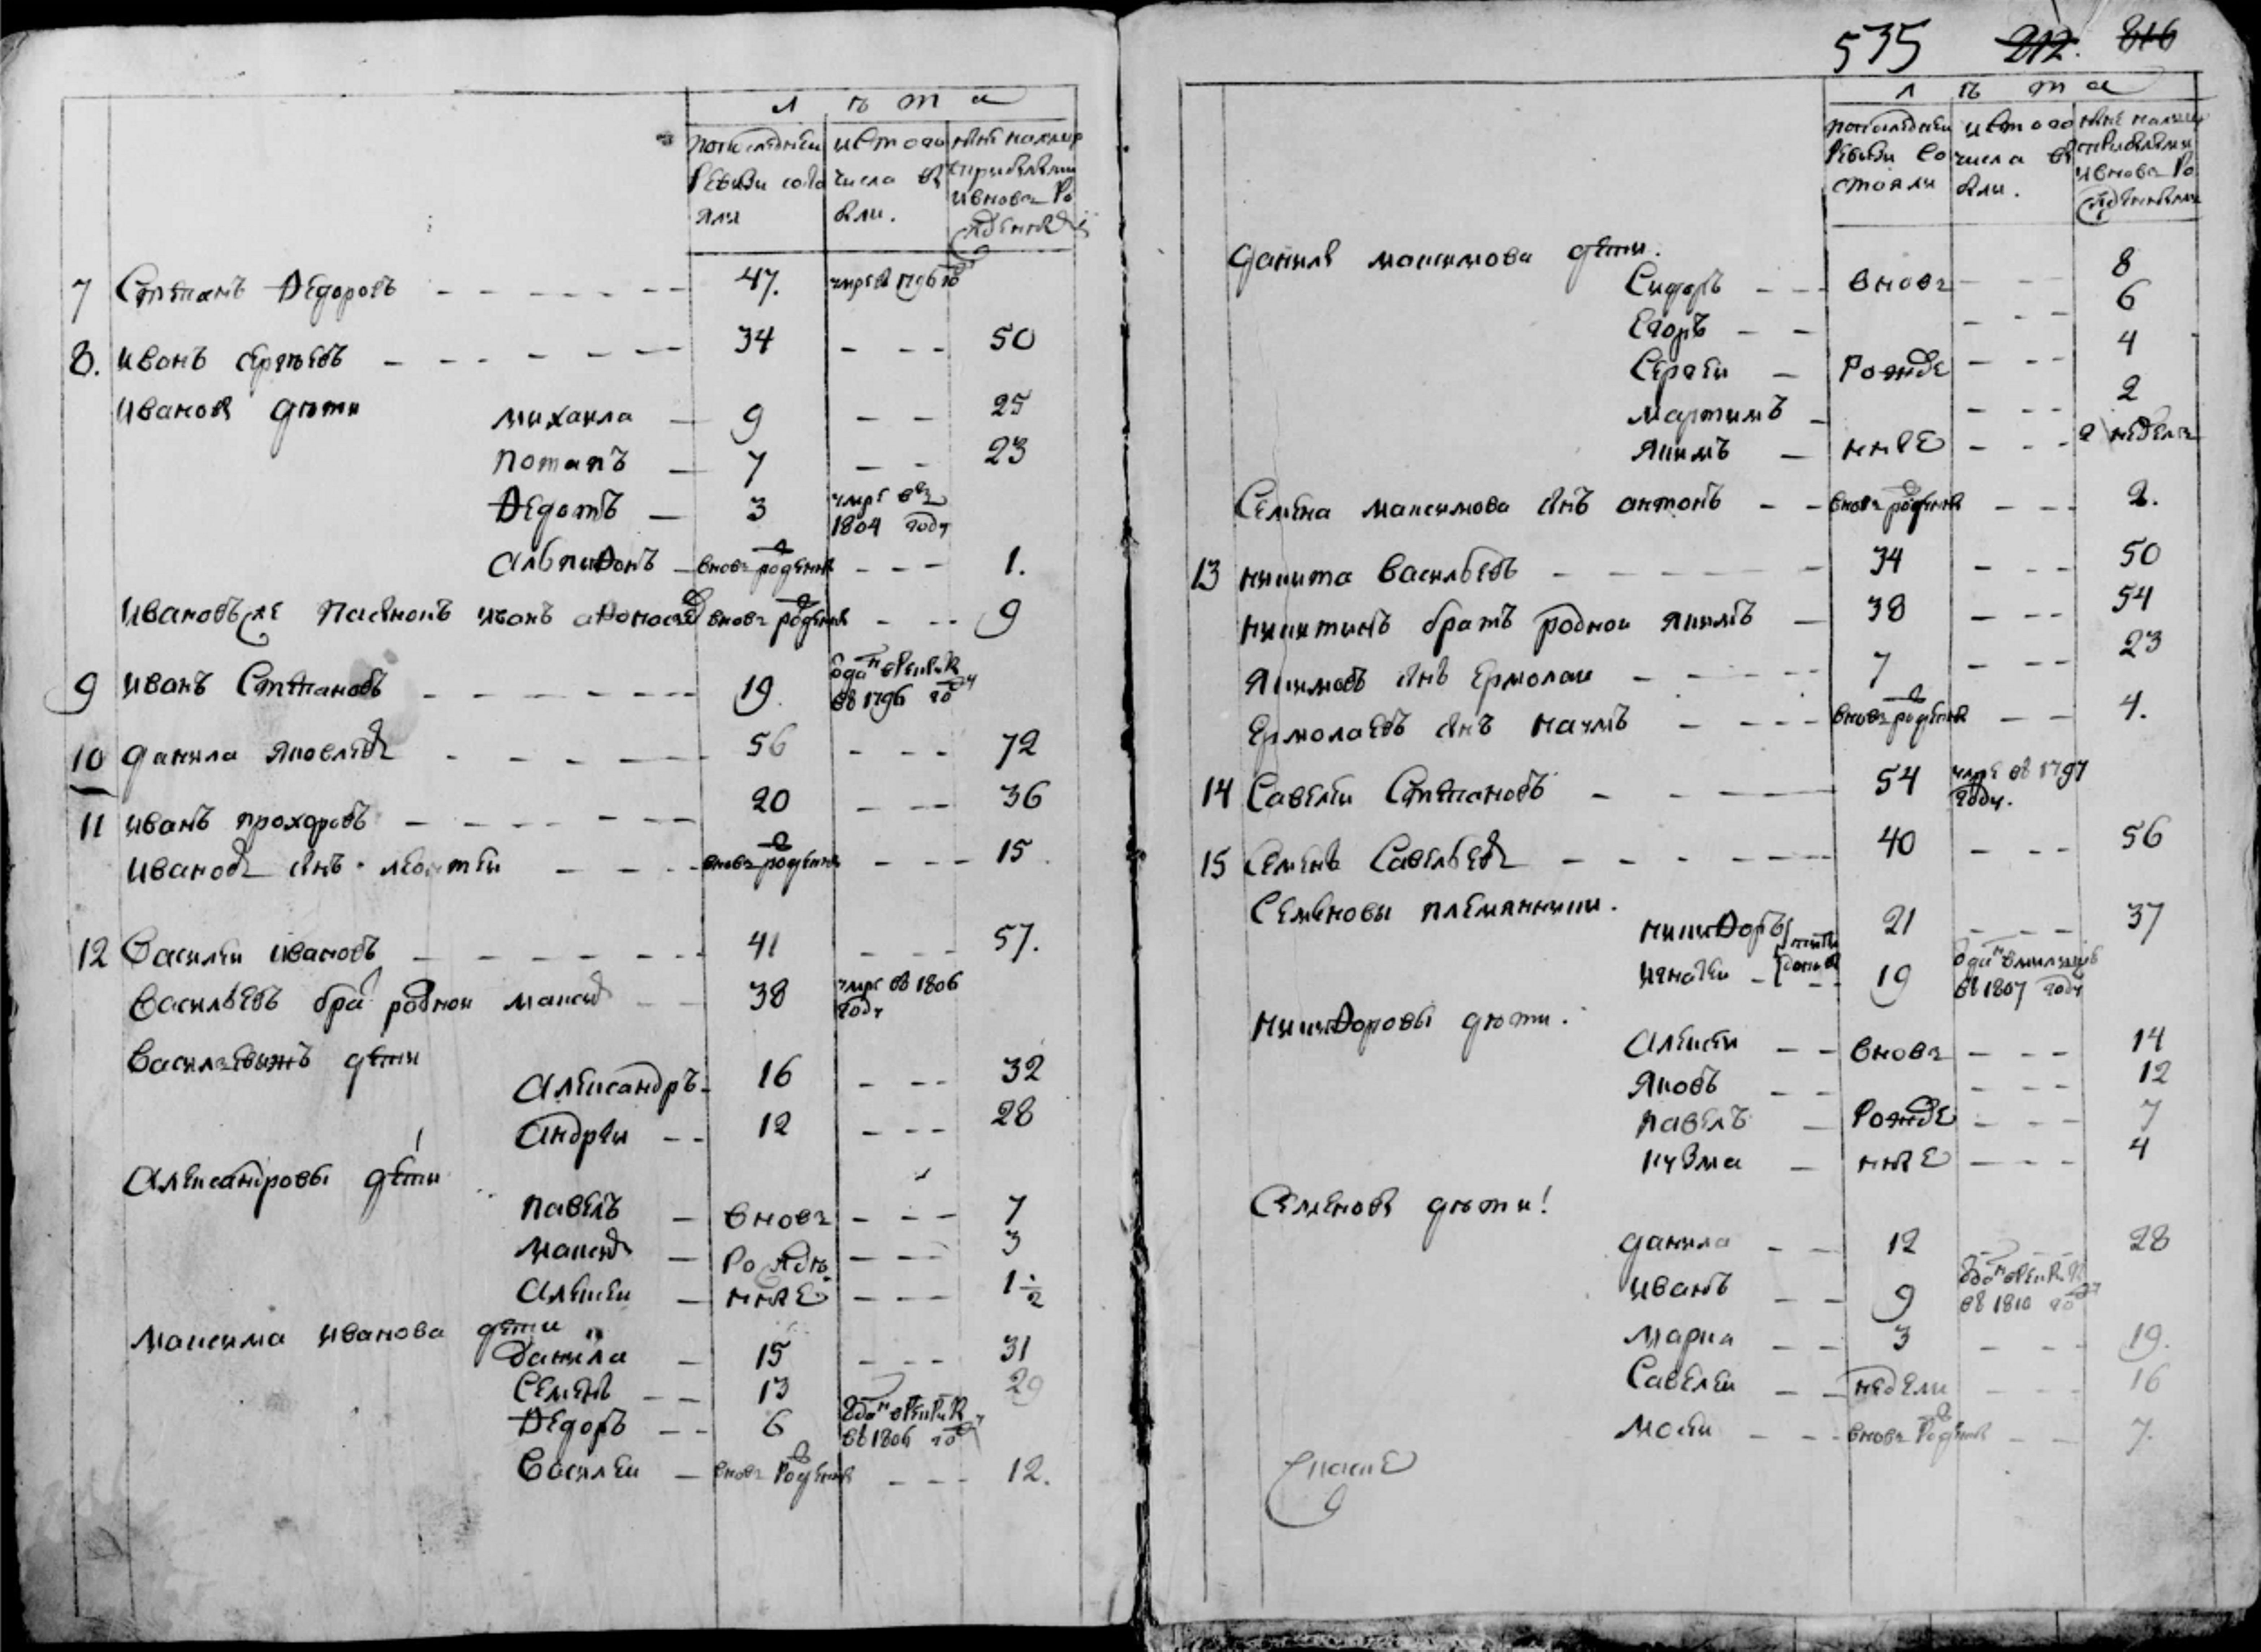 лѣта
последнеи ревизи состояли
ис того числа выбыли.
ныне налицо с прибылыми и вновь рожденными
7 Степанъ Федоровъ 47. умре в 1796 го
8. Иванъ Сергеевъ 34 50
Ивановы дѣти Михаила 9 25
Потапъ 7 23
Федотъ 3 умре въ 1804 году
Алѳпифонъ вновь рожденны 1.
Ивановъ же пасынокъ Иванъ Афонасьев вновь рожденны 9
9 Иванъ Степановъ 19. одан в рекруты в 1796 году
10 Данила Яковлевъ 56 72
11 Иванъ Прохоровъ 20 36
Ивановъ сынъ Леонтеи вновь рожденны 15
12 Василеи Ивановъ 41 57.
Васильевъ брат роднои Максим 38 умре в 1806 году
Василевыжъ дети
Александръ 16 32
Андреи 12 28
Александровы дети
Павелъ вновь 7
Максимъ рождѣ 3
Алексеи нные 1 1/2
Максима Иванова дети
Данила 15 31
Семенъ 13 29
Федоръ 6 одан в рекруты в 1806 году
Василеи вновь рожденны 12.
535 212. 816
лѣта
последнеи ревизи состояли
ис того числа выбыли.
ныне налицо с прибылыми и вновь рожденными
Данилы Максимова дети.
Сидоръ вновь 8
Егоръ 6
Сергеи рожде 4
Мартинъ 2
Якимъ нные 2 недели
Семена Максимова сынъ Антонъ вновь рожденны 2.
13 Никита Васильевъ 34 50
Никитинъ братъ роднои Якимъ 38 54
Якимовъ сынъ Ермолаи 7 23
Ермолаевъ сынъ Наумъ вновь рожденны 4.
14 Савелеи Степановъ 54 умре в 1797 году.
15 Семенъ Савельевъ 40 56
Семеновы племянники.
Никифоръ 21 37
Игнатеи 19 одан в милицию в 1807 году
Никифоровы дѣти.
Алексеи вновь 14
Яковъ 12
Павелъ рожде 7
Кузма нные 4
Семеновы дѣти!
Данила 12 28
Иванъ 9 одан в рекруты в 1810 году
Марка 3 19.
Савелеи недели 16
Мосеи вновь рожденны 7.